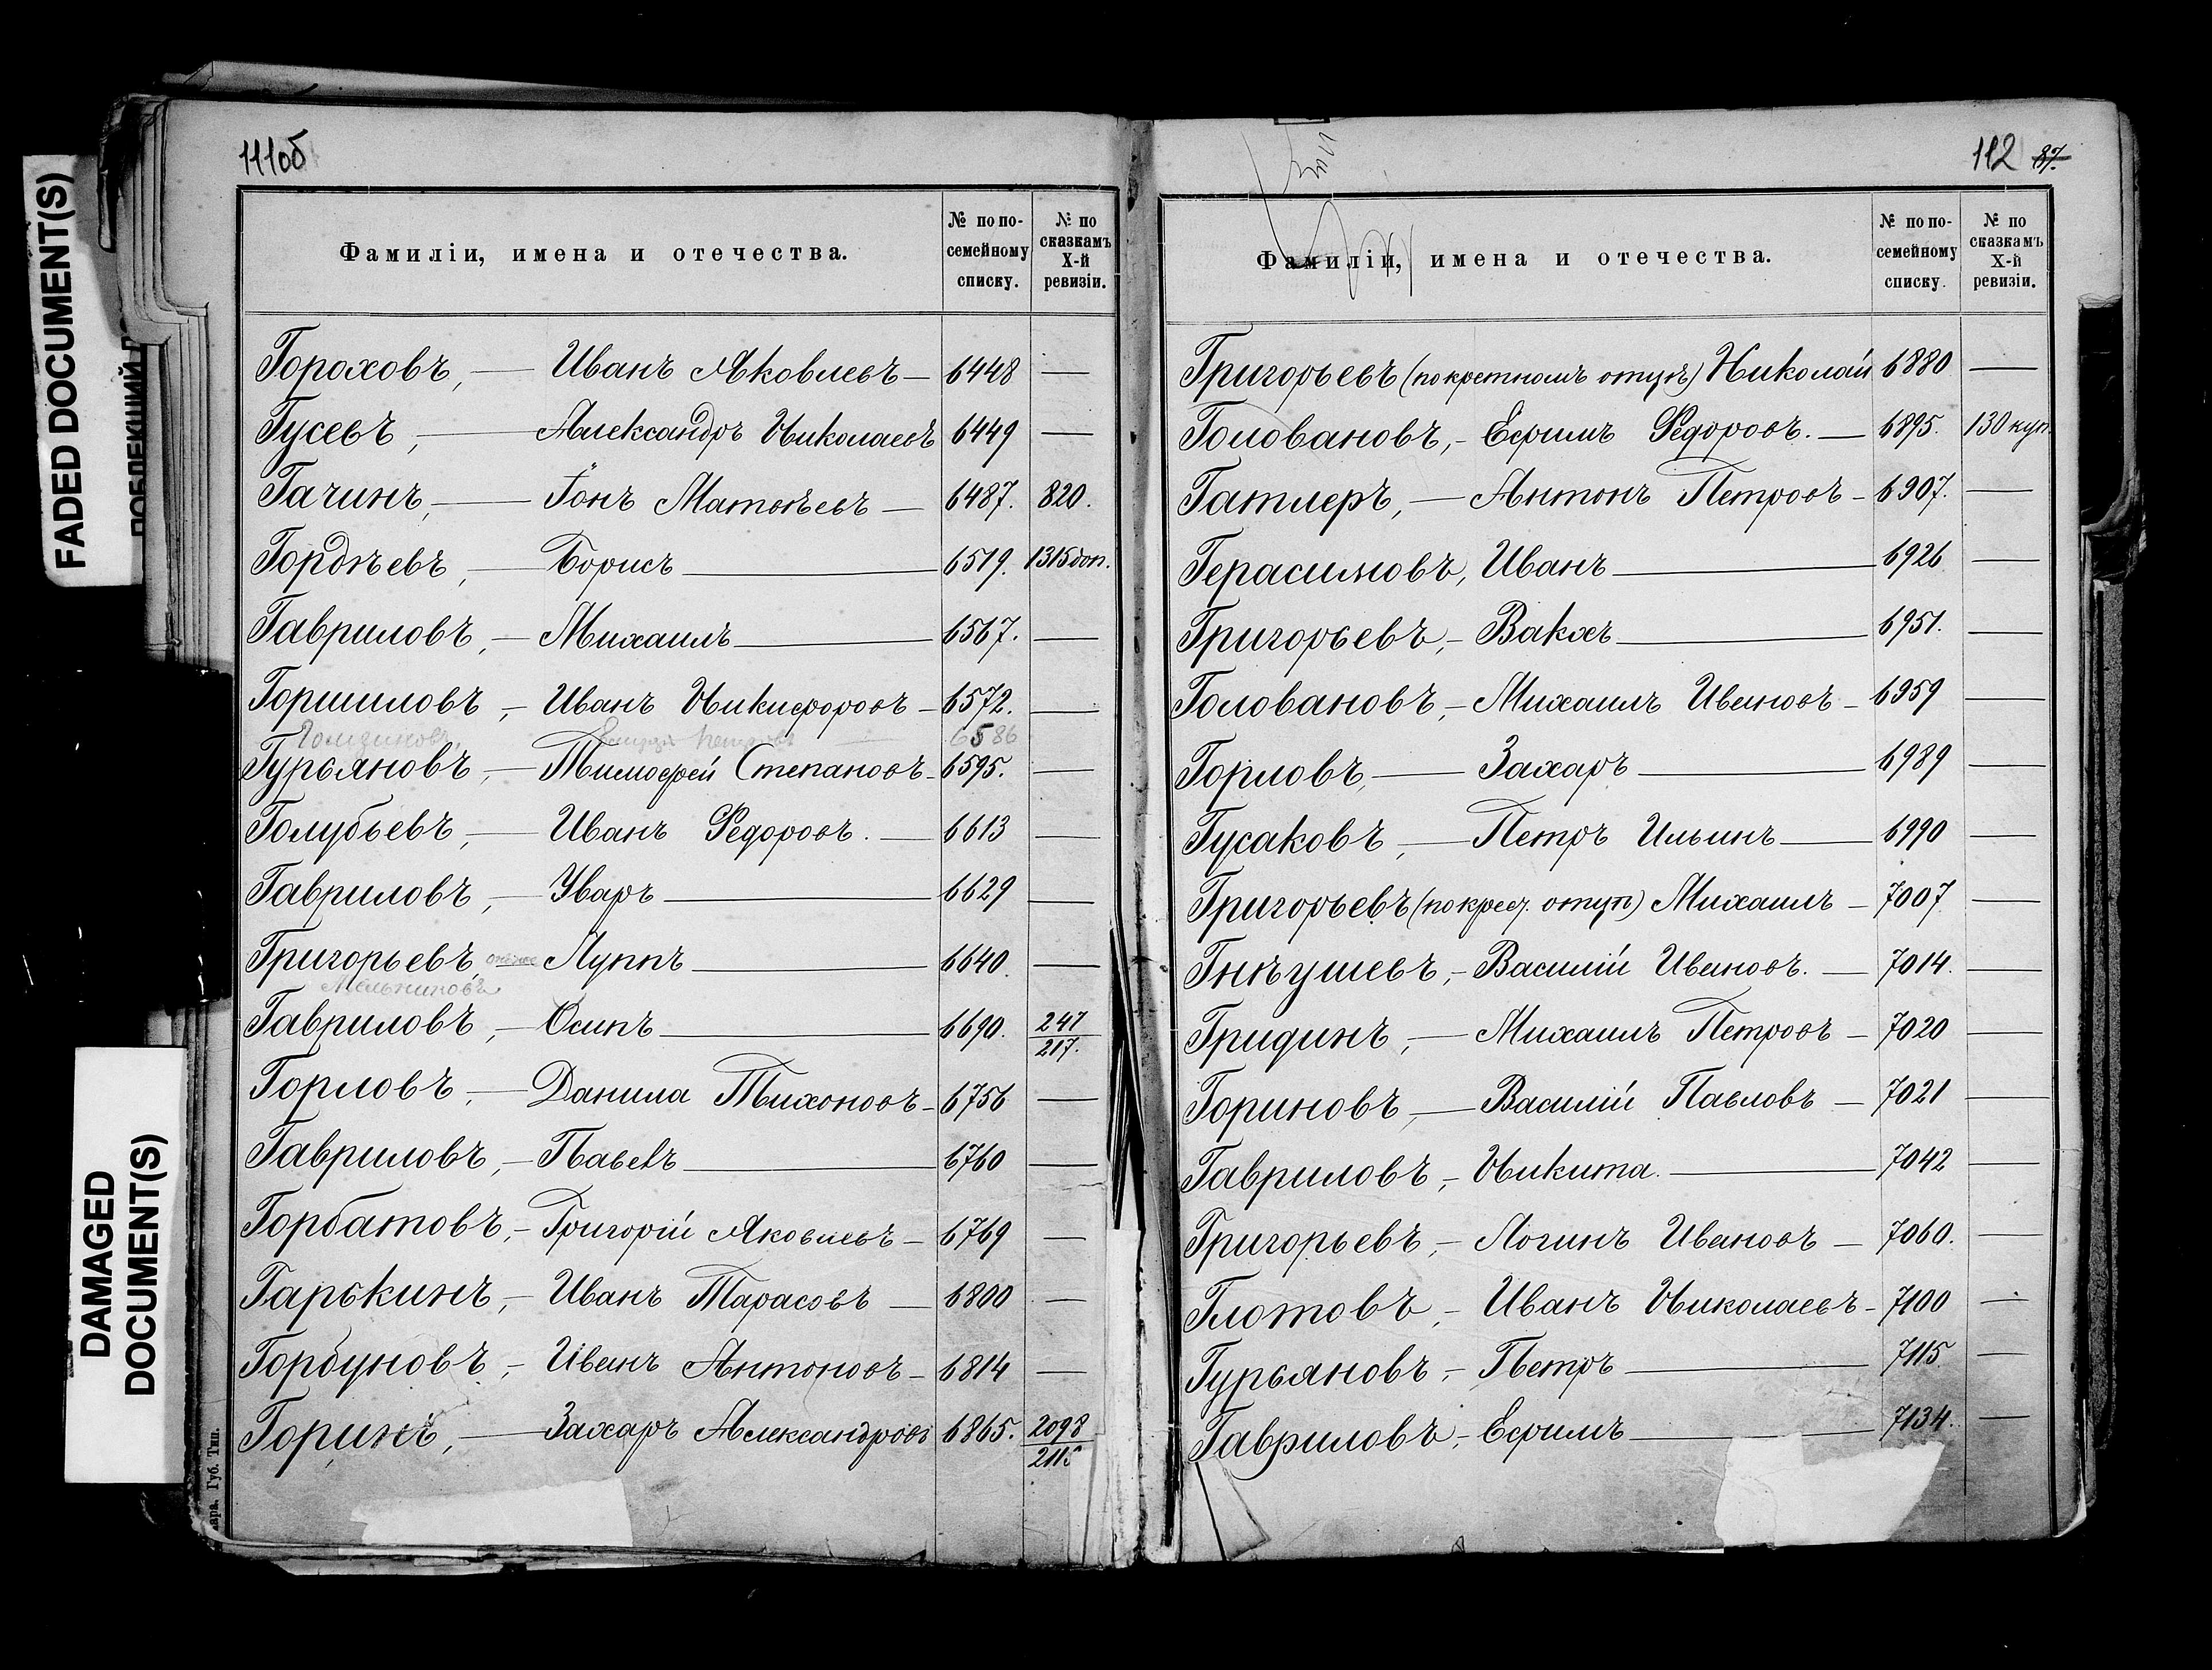 FADED DOCUMENT(S)
DAMAGED
DOCUMENT(S)
111об
Фамиліи, имена и отечества.
№ по по-
семейному
списку.
№ по
сказкамъ
X-й
ревизіи.
Гороховъ, — Иванъ Яковлевъ — 6448 —
Гусевъ, — Александръ Николаевъ 6449 —
Гачинъ, — Іонъ Матвѣевъ — 6487. 820.
Гордѣевъ, — Борисъ — 6519. 1315 доп.
Гавриловъ, — Михаилъ — 6567. —
Горшиловъ, — Иванъ Никифоровъ — 6572. —
6586
Гурьяновъ, — Тимофей Степановъ — 6595. —
Голубьевъ, — Иванъ Федоровъ. — 6613 —
Гавриловъ, — Уваръ — 6629 —
Григорьевъ, Луппъ — 6640. —
Мельниковъ
Гавриловъ, — Осипъ — 6690. 247
217.
Горловъ, — Данила Тихоновъ — 6756 —
Гавриловъ, — Павелъ — 6760 —
Горбатовъ, — Григорій Яковлевъ — 6769 —
Гарькинъ, — Иванъ Тарасовъ — 6800 —
Горбуновъ, — Иванъ Антоновъ — 6814 —
Горинъ, — Захаръ Александровъ 6865. 2098
ара. Губ. Тип.
112 87.
Фамиліи, имена и отечества.
№ по по-
семейному
списку.
№ по
сказкамъ
X-й
ревизіи.
Григорьевъ (по крестномъ отцѣ) Николай 6880 —
Головановъ, — Ефимъ Федоровъ. — 6895. 130 куп.
Гатлеръ, — Антонъ Петровъ — 6907. —
Герасимовъ, Иванъ — 6926 —
Григорьевъ, — Вакхъ — 6951. —
Головановъ, — Михаилъ Ивановъ — 6959 —
Горловъ, — Захаръ — 6989 —
Гусаковъ, — Петръ Ильинъ — 6990 —
Григорьевъ (по крест. отцѣ) Михаилъ — 7007 —
Гнѣушевъ, — Василій Ивановъ. — 7014. —
Гридинъ, — Михаилъ Петровъ — 7020 —
Гориновъ, — Василій Павловъ — 7021 —
Гавриловъ, — Никита. — 7042 —
Григорьевъ, — Логинъ Ивановъ — 7060. —
Глотовъ, — Иванъ Николаевъ — 7100 —
Гурьяновъ, — Петръ — 7115 —
Гавриловъ, — Ефимъ — 7134. —